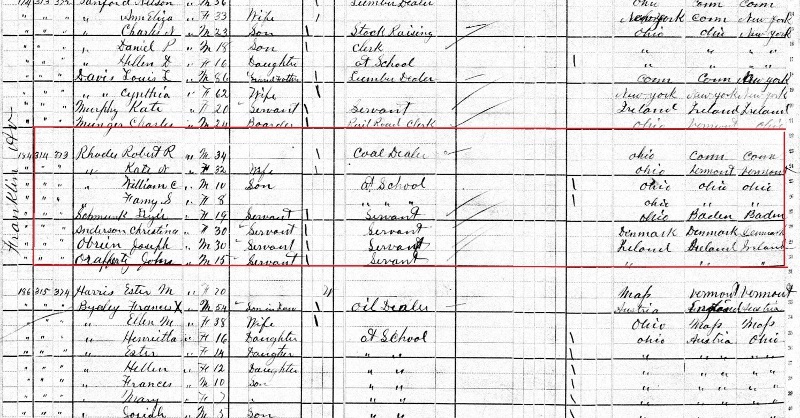 174 313 372 Sanford Nelson " M 56 Lumber Dealer Ohio Conn Conn
" " " " Ann Eliza " F 33 Wife New York Conn New York
" " " " Charles N " M 23 Son Stock Raising Ohio Ohio New York
" " " " Daniel P " M 18 Son Clerk " " "
" " " " Hellen D " F 16 Daughter at School " " "
" " " Davis Louis L " M 86 Lumber Dealer Conn Conn New York
" " " " " Cynthia " F 62 Wife New York New York New York
" " " Murphy Kate " F 20 Servant Servant Ireland Ireland Ireland
" " " Munger Charles " M 24 Boarder Rail Road Clerk Ohio Vermont Ohio
Franklin Av
184 314 373 Rhodes Robert R " M 34 Coal Dealer Ohio Conn Conn
" " " " Kate N " F 32 Wife Ohio Vermont Vermont
" " " " William C " M 10 Son at School Ohio Ohio Ohio
" " " " Fanny S " F 8 " " " Ohio " "
" " " Schmunk " F 19 Servant Servant Ohio Baden Baden
" " " Anderson Christina " F 30 Servant Servant Denmark Denmark Denmark
" " " Obrien Joseph " M 30 Servant Servant Ireland Ireland Ireland
" " " Orafferty John " M 15 Servant Servant " " "
186 315 374 Harris Ester M " F 20 Mass Vermont Vermont
" " " Byerley Francis X " M 54 Son in Law Oil Dealer Austria England Austria
" " " " Ellen M " F 38 Wife Ohio Mass Mass
" " " " Henrietta " F 16 Daughter at School Ohio Austria Ohio
" " " " Ester " F 14 Daughter " " " " "
" " " " Hellen " F 12 Daughter " " " " "
" " " " Frances " M 10 Son " " " " "
" " " " Mary " F 7 " " " " " "
" " " " Josiah " M 5 Son " " "